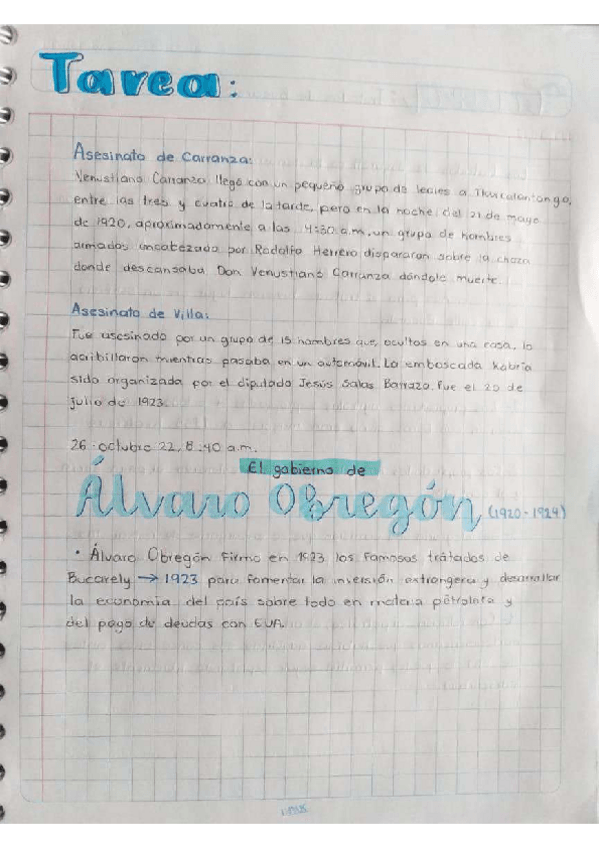 Tarea:
Asesinato de Carranza:
Venustiano Carranza llego con un pequeño grupo de leales a Tlaxcalantongo,
entre las tres y cuatro de la tarde, pero en la noche del 21 de mayo
de 1920, aproximadamente a las 4:30 a.m. un grupo de hombres
armados encabezado por Rodolfo Herrero dispararon sobre la choza
donde descansaba Don Venustiano Carranza dándole muerte.
Asesinato de Villa:
Fue asesinado por un grupo de 15 hombres que, ocultos en una casa, lo
acribillaron mientras pasaba en un automóvil. La emboscada habria
sido organizada por el diputado Jesús Salas Barrazo. Fue el 20 de
julio de 1923.
26 - octubre 22, 8:40 a.m.
El gobierno de
Álvaro Obregón (1920 - 1924)
• Álvaro Obregón firmo en 1923 los famosos tratados de
Bucarely → 1923 para fomentar la inversión extrangera y desarrollar
la economia del país sobre todo en materia pétrolera y
del pago de deudas con EUA.